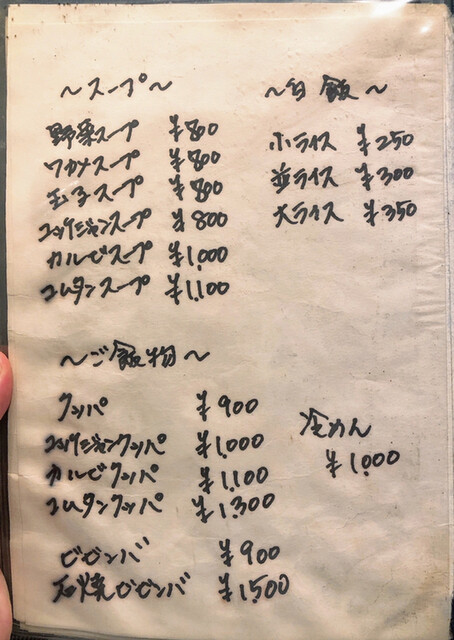 ～スープ～
野菜スープ ¥800
ワカメスープ ¥800
玉子スープ ¥800
ユッケジャンスープ ¥800
カルビスープ ¥1,000
コムタンスープ ¥1,100
～白飯～
小ライス ¥250
並ライス ¥300
大ライス ¥350
～ご飯物～
クッパ ¥900
ユッケジャンクッパ ¥1,000
カルビクッパ ¥1,100
コムタンクッパ ¥1,300
ビビンバ ¥900
石焼ビビンバ ¥1,500
冷めん
¥1,000